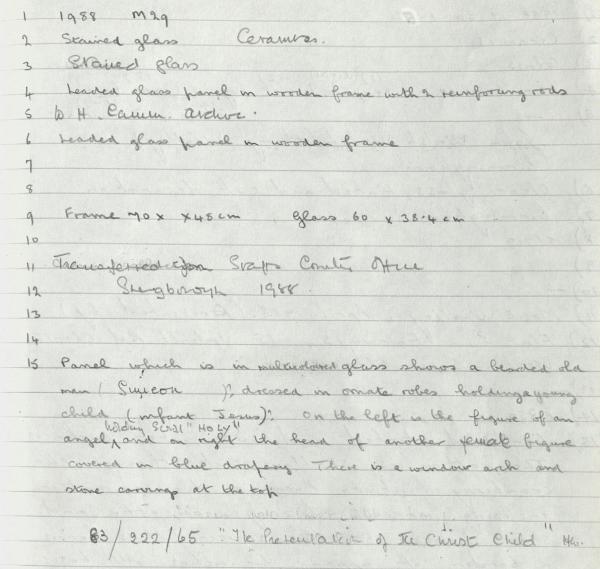 1 1988 M29
2 Stained glass Ceramics.
3 Stained glass
4 Leaded glass panel in wooden frame with 2 reinforcing rods
5 W. H. archive.
6 Leaded glass panel in wooden frame
7
8
9 Frame 70 x x48cm Glass 60 x 38.4 cm
10
11 Transferred from Staffs County Office
12 Shugborough 1988.
13
14
15 Panel which is in multicoloured glass shows a bearded old
man (Simeon )?, dressed in ornate robes holding a young
child (infant Jesus)? On the left is the figure of an
holding scroll "HOLY"
angel, and on right the head of another female figure
covered in blue drapery. There is a window arch and
stone carvings at the top
83/222/65 "The Presentation of The Christ Child"